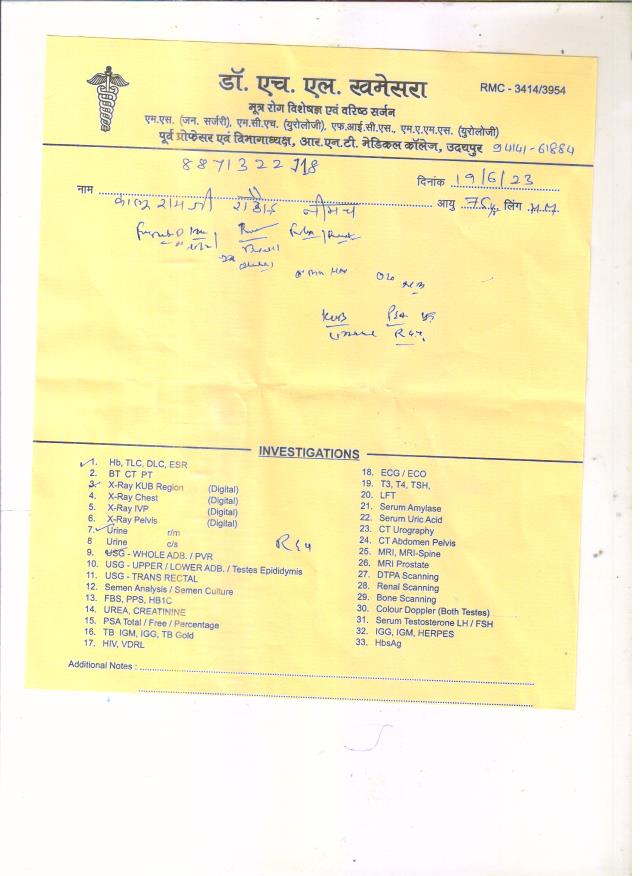 डॉ. एच. एल. खमेसरा
RMC - 3414/3954
मूत्र रोग विशेषज्ञ एवं वरिष्ठ सर्जन
एम.एस. (जन. सर्जरी), एम.सी.एच. (युरोलोजी), एफ.आई.सी.एस., एम.ए.एम.एस. (युरोलोजी)
पूर्व प्रोफेसर एवं विभागाध्यक्ष, आर.एन.टी. मेडिकल कॉलेज, उदयपुर 94141-61884
दिनांक 19/6/23
नाम कालू रामजी राठौड़ नीमच आयु लिंग
KUB PSA
INVESTIGATIONS
1. Hb, TLC, DLC, ESR
2. BT CT PT
3. X-Ray KUB Region (Digital)
4. X-Ray Chest (Digital)
5. X-Ray IVP (Digital)
6. X-Ray Pelvis (Digital)
7. Urine r/m
8 Urine c/s
9. USG - WHOLE ADB. / PVR
10. USG - UPPER / LOWER ADB. / Testes Epididymis
11. USG - TRANS RECTAL
12. Semen Analysis / Semen Culture
13. FBS, PPS, HB1C
14. UREA, CREATININE
15. PSA Total / Free / Percentage
16. TB IGM, IGG, TB Gold
17. HIV, VDRL
18. ECG / ECO
19. T3, T4, TSH,
20. LFT
21. Serum Amylase
22. Serum Uric Acid
23. CT Urography
24. CT Abdomen Pelvis
25. MRI, MRI-Spine
26. MRI Prostate
27. DTPA Scanning
28. Renal Scanning
29. Bone Scanning
30. Colour Doppler (Both Testes)
31. Serum Testosterone LH / FSH
32. IGG, IGM, HERPES
33. HbsAg
Additional Notes :